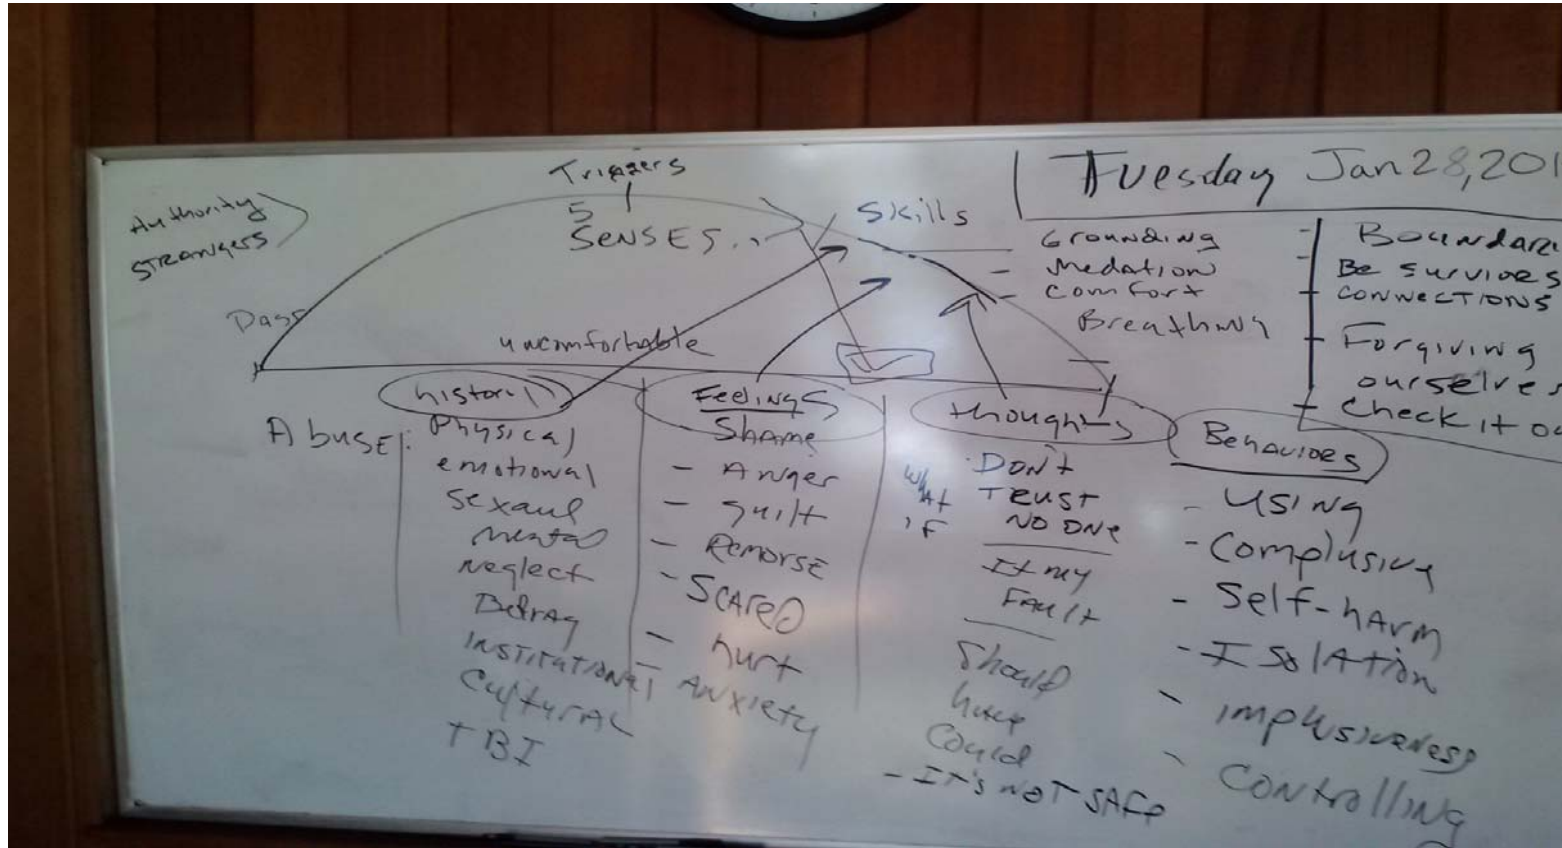 Tuesday Jan 28, 201
Triggers
5
SENSES
Authority
STRANGERS
Skills
Grounding
Medation
Comfort
Breathing
Boundari
Be surviors
CONNECTIONS
Forgiving
ourselves
Check it ou
Days
uncomfortable
history
Abuse:
Physical
emotional
Sexaul
mental
Neglect
Betray
INSTITUTIONAL
CulturAL
TBI
Feelings
Shame
- Anger
- guilt
- Remorse
- Scared
- hurt
- Anxiety
thoughts
WhAt
iF
DON'T
TRUST
NO ONE
It my
FAult
Should
have
Could
- IT'S NOT SAFe
Behaviors
- USING
- Complusive
- Self-hArm
- ISOlATion
- implusiveness
- CONtrolling